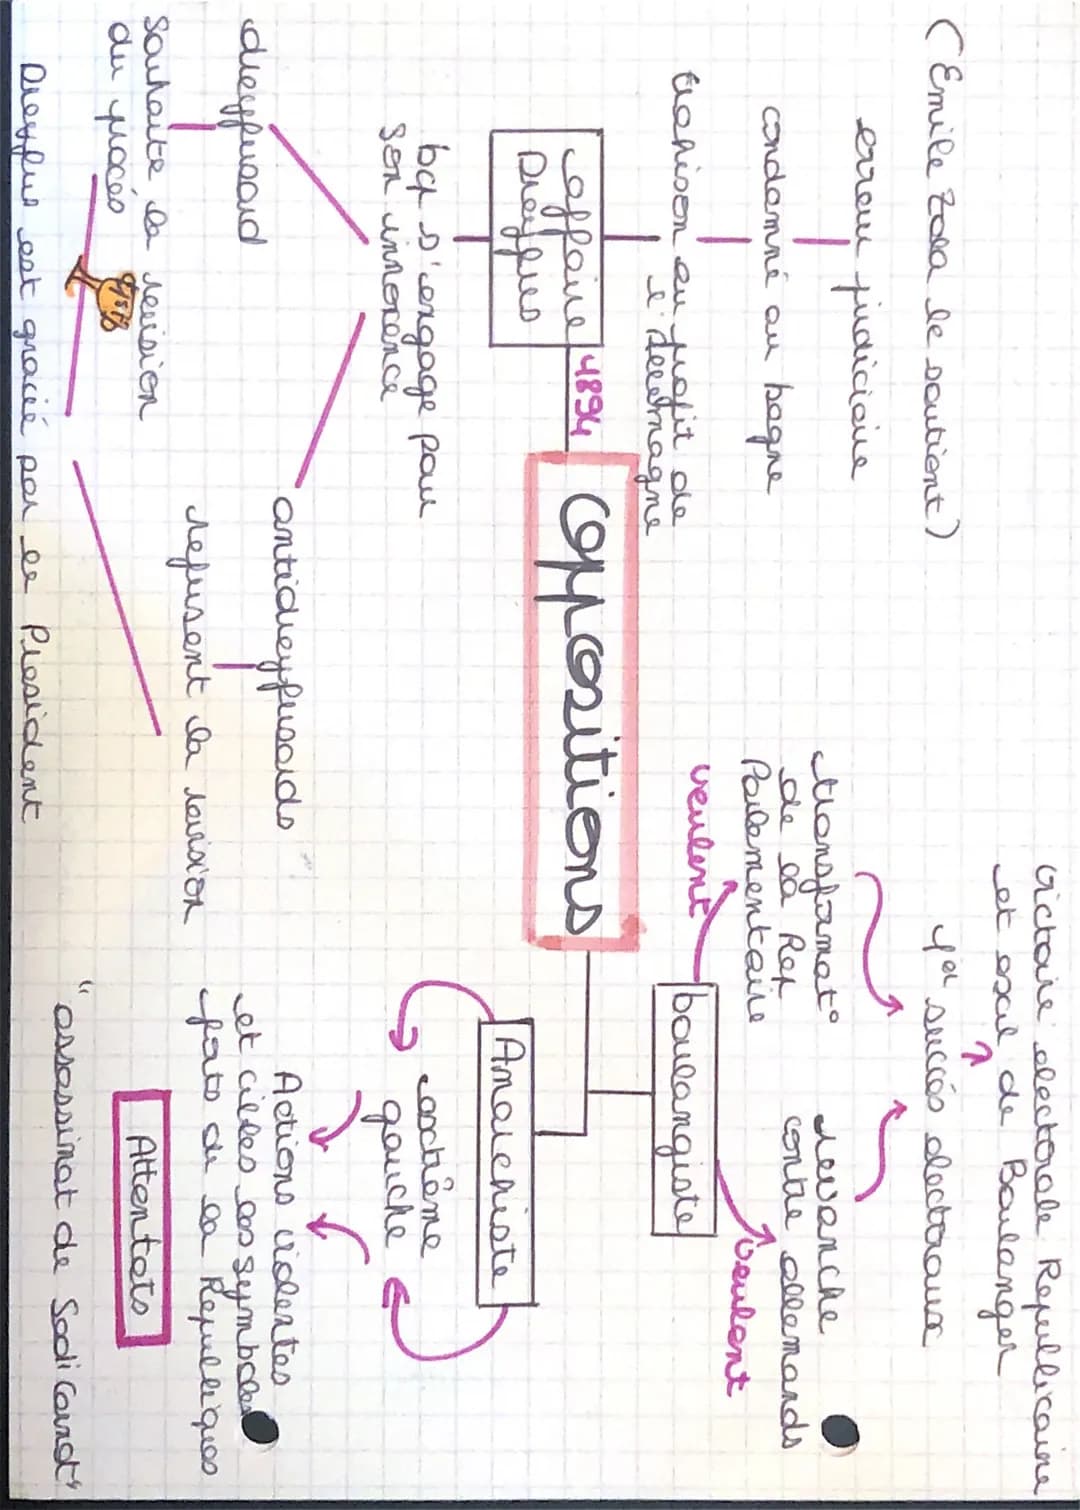 (Emile Zola le soutient)
erreur judiciaire
condamné au bagne
trahison au profit de
l'Allemagne
affaire
Dreyfus
1894
bcp s'engage pour
son innocence
dreyfusard
souhaite la révision
du procès
antidreyfusards
refusent la révision
Dreyfus est gracié par le President
Oppositions
victoire electorale Republicaine
et exil de Boulanger
1er succès electoraux
transformat°
de la Rep
Parlementaire
veulent
revanche
contre allemands
veulent
boulangiste
Anarchiste
extrême
gauche
Actions violentes
et cibles les symboles
forts de la Republiques
Attentats
"assassinat de Sadi Carnot"